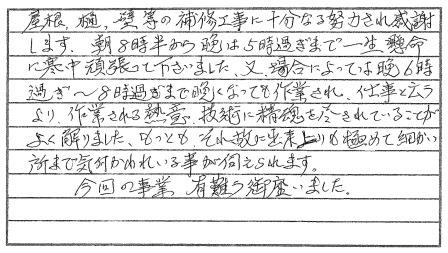 屋根、樋、壁等の補修工事に十分なる努力され感謝
します。朝8時半から晩は5時過ぎまで一生懸命
に寒中頑張って下さいました、又、場合によっては晩6時
過ぎ〜8時過ぎまで晩くなっても作業され、仕事と云う
より、作業される熱意、技術に精魂を尽されていることが
よく解りました、もっとも、それ故に出来上りも極めて細かい
所まで気付かれいる事が伺えられます。
今回の事業、有難う御座いました。